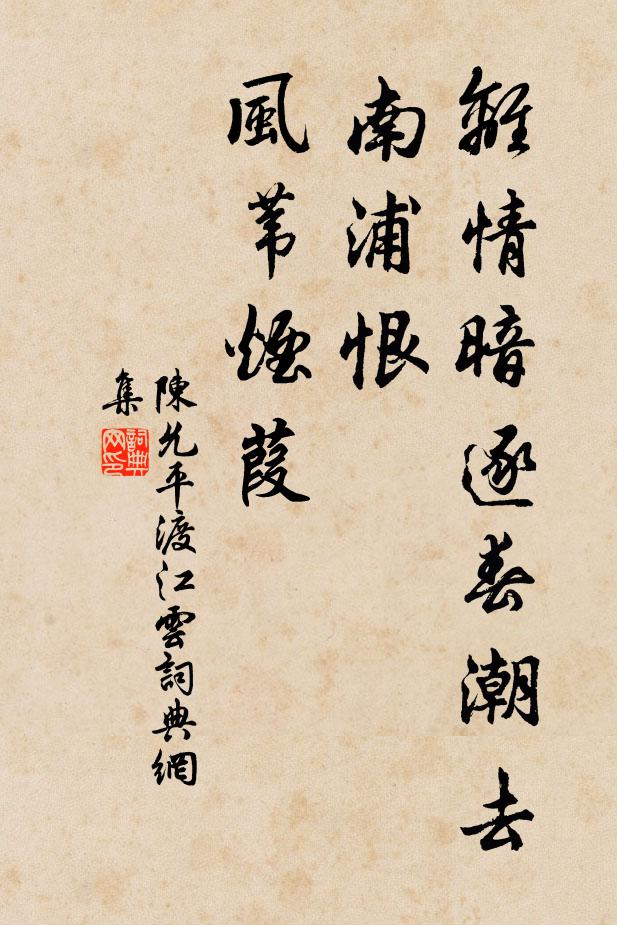 離情暗逐春潮去
南浦恨
風葦煙葭
陳允平渡江雲詞典網
集
詞典
网印